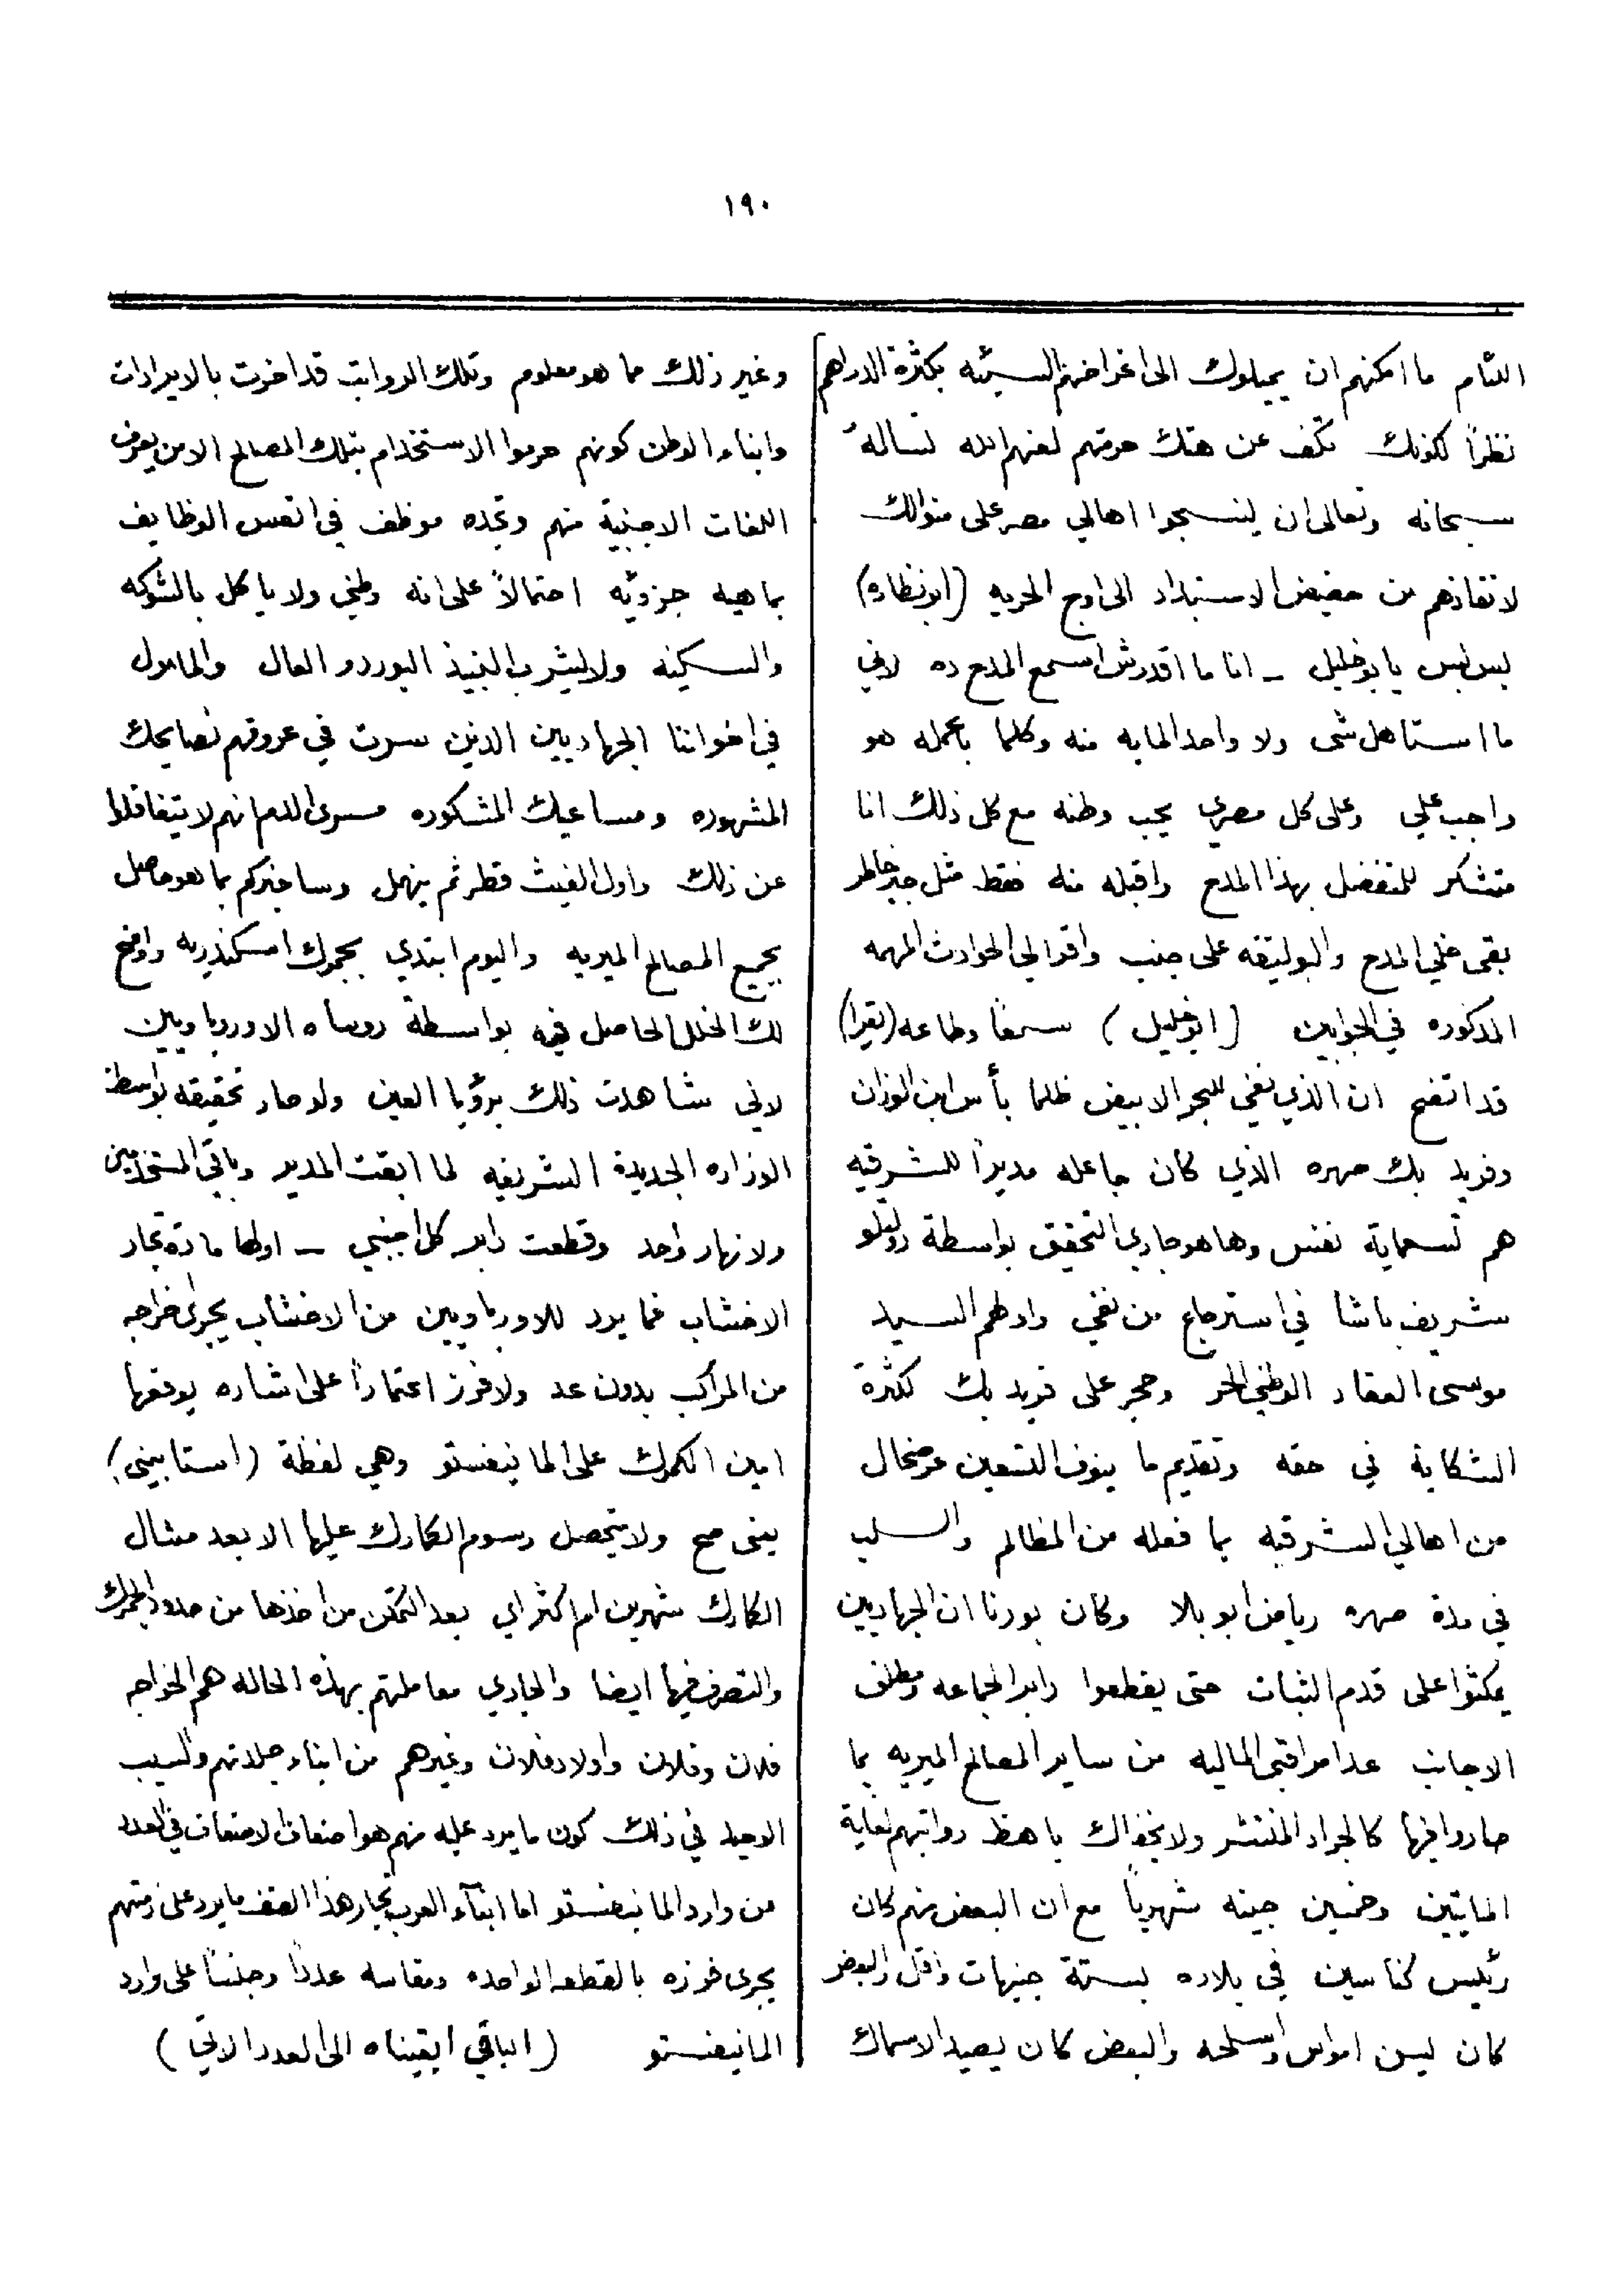 ١٩٠
اللئام ما امكنهم ان يميلوك الى اغراضهم السيئه بكثرة الدراهم
نظراً لكونك تكف عن هتك حرمتهم لعنهم الله نسأله
سبحانه وتعالى ان ينسجوا اهالي مصر على منوالك
لانقاذهم من حضيض الاستبداد الى اوج الحريه (ابونظاره)
بس بس يا بوخليل _ انا ما اقدرش اسمع المدح ده لاني
ما استاهل شى ولا واحد المايه منه وكلما باعمله هو
واجب علي وعلى كل مصري يحب وطنه مع كل ذلك انا
متشكر للمتفضل بهذا المدح واقبله منه فقط مثل جبر خاطر
بقى خلي المدح والبوليتقه على جنب واقرا لي الحوادث المهمه
المذكوره في الجوابين (ابوخليل) سمعًا وطاعه (يقرا)
قد اتضح ان الذي نفي للبحر الابيض ظلما بأس ابن الوزان
وفريد بك صهره الذي كان جاعله مديراً للشرقيه
هم تسعماية نفس وها هو جاري التحقيق بواسطة دولتلو
شريف باشا في استرجاع من نفي واولهم السيد
موسى العقاد الوطني الحر وحجر على فريد بك لكثرة
الشكاية في حقه وتقديم ما ينوف التسعين عرضحال
من اهالي الشرقيه بما فعله من المظالم والسلب
في مدة صهره رياض ابو بلا وكان بودنا ان الجهاديين
يمكثوا على قدم الثبات حتى يقطعوا دابر الجماعه ومطلق
الاجانب عدا مراقبي الماليه من ساير المصالح الميريه بما
صاروا فيها كالجراد المنتشر ولا يخفاك باهظ رواتبهم لغاية
المايتين وخمسين جينه شهرياً مع ان البعض منهم كان
رئيس كناسين في بلاده بستة جنيهات واقل والبعض
كان يسن امواس واسلحه والبعض كان يصيد الاسماك
وغير ذلك مما هو معلوم وتلك الرواتب قد اضرت بالايرادات
وابناء الوطن كونهم حرموا الاستخدام بتلك المصالح الا من يعرف
اللغات الاجنبية منهم وتجده موظف في اتعس الوظايف
بماهيه جزئيه احتمالاً على انه وطني ولا ياكل بالشوكه
والسكينه ولا يشرب النبيذ البوردو العال والمامول
في اخواننا الجهاديين الذين سرت في عروقهم نصايحك
المشهوره ومساعيك المشكوره مسرى الدم انهم لا يتغافلوا
عن ذلك واول الغيث قطر ثم ينهمل وساخبركم بما هو حاصل
بجميع المصالح الميريه واليوم ابتدي بجمرك اسكندريه واوضح
لك الخلل الحاصل فيه بواسطة روساه الاوروباويين
لاني شاهدت ذلك برؤيا العين ولو صار تحقيقه بواسطة
الوزاره الجديدة الشريفه لما ابقت المدير وباقي المستخدمين
ولا نهار واحد وقطعت دابر كل اجنبي _ اولها مادة تجار
الاخشاب فما يرد للاورباويين من الاخشاب يجرى اخراجه
من المراكب بدون عد ولا فرز اعتماداً على اشاره يوقعها
امين الكمرك على المانيفستو وهي لفظة (استابيني)
يعنى صح ولا يتحصل رسوم الكمارك عليها الا بعد مشال
الكمارك شهرين ام اكثر اي بعد التمكن من اخذها من حدود الجمرك
والتصرف فيها ايضا والجاري معاملتهم بهذه الحاله هم الخواجه
فلان وفلان واولاد فلان وغيرهم من ابناء جلدتهم والسبب
الوحيد في ذلك كون ما يرد عليه منهم هو اضعاف الاضعاف في العدد
من وارد المانيفستو اما ابنآء العرب تجار هذا الصنف ما يرد على ذمتهم
يجرى فرزه بالقطعه الواحده ومقاسه عدداً وجنساً على وارد
المانيفستو (الباقي ابقيناه الى العدد الاتي)